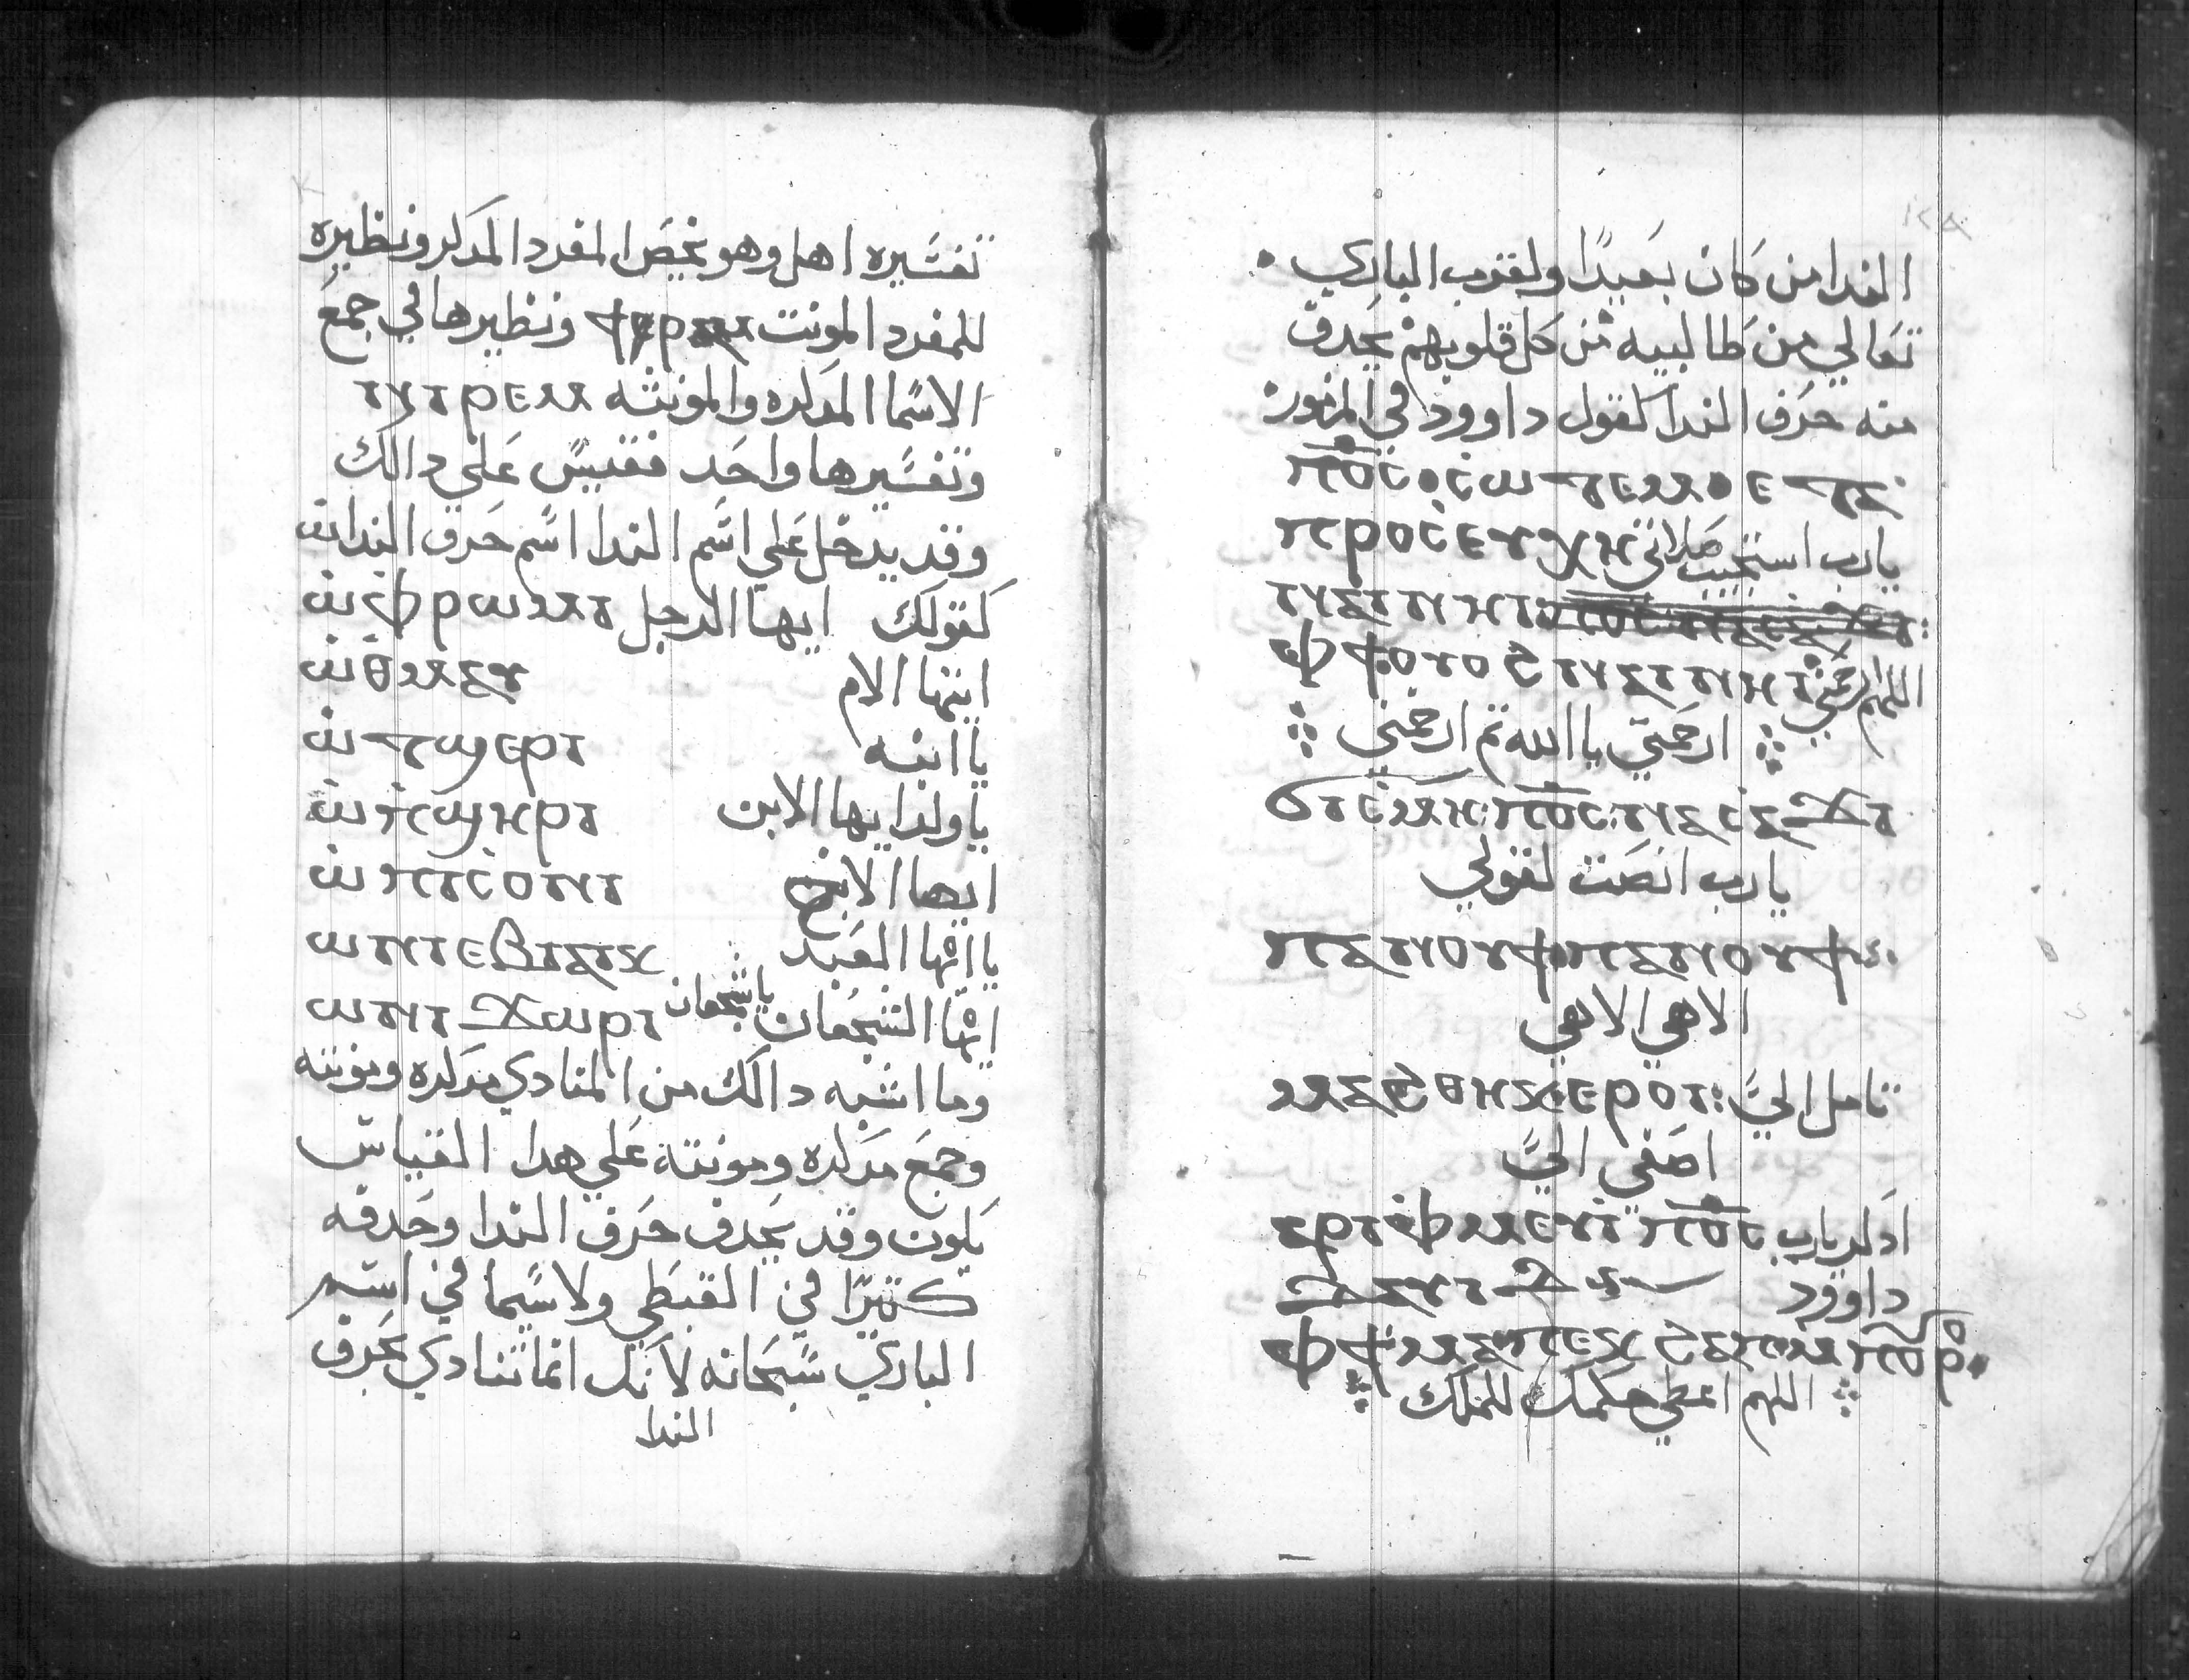 تفسيره اهل وهو يخص المفرد المدكر ونظيره
للمفرد المونت ونظيرها في جمع
الاسما المدكره والمونته ⲛⲓⲣⲉⲙ
وتفسيرها واحد فقيس علي دالك
وقد يدخل علي اسم الندا اسم حرف الندا ⲱ̀
كقولك ايها الرجل ⲱ̀ ⲫ̀ⲣⲱⲙⲓ
ايتها الام ⲱ̀ ⲑⲙⲁⲩ
يا ابنه ⲱ̀ ϯϣⲉⲣⲓ
يا ولد ايها الابن ⲱ̀ ⲡ̀ϣⲏⲣⲓ
ايها الاخ ⲱ̀ ⲡⲓⲥⲟⲛⲓ
يا ايها العبيد ⲱ ⲛⲓⲉⲃⲓⲁⲓⲕ
ايها الشجعان يا شجعان ⲱ ⲛⲓϫⲱⲣⲓ
وما اشبه دالك من المنادي مدكره ومونته
وجمع مدكره ومونته علي هدا القياس
يكون وقد يحدف حرف الندا وحدفه
كتيرا في القبطي ولاسيما في اسم
الباري سبحانه لانك انما تنادي بحرف
الندا
الندا من كان بعيدا ولقرب الباري
تعالي من طالبيه من كل قلوبهم يحدف
منه حرف الندا كقول داوود في المزمور
ⲡϭⲥ ⲥⲱⲧⲉⲙ ⲉⲧⲁ
يارب استجيب صلاتي ⲡⲣⲟⲥⲉⲩⲭⲏ
ⲛⲁⲓ ⲛⲏⲓ
اللهم ارحمني ⲫϯ ⲟⲩⲟϩ ⲛⲁⲓ ⲛⲏⲓ
ارحمني يا الله تم ارحمني
ϭⲓⲥⲙⲏ ⲡϭⲥ ⲛⲁⲥⲁϫⲓ
يارب انصت لقولي
ⲡⲁⲛⲟⲩϯ ⲡⲁⲛⲟⲩϯ
الاهي الاهي
تامل اليّ ⲙⲁϩⲑⲏⲕ ⲉⲣⲟⲓ
اصغي اليّ
ادكر يارب ⲁⲣⲓⲫⲙⲉⲩⲓ ⲡϭⲥ
داوود ⲇⲁⲩⲓⲇ
ⲫϯ ⲙⲁⲡⲉⲕϩⲁⲡ ⲙⲡⲟⲩⲣⲟ
اللهم اعطي حكمك للملك